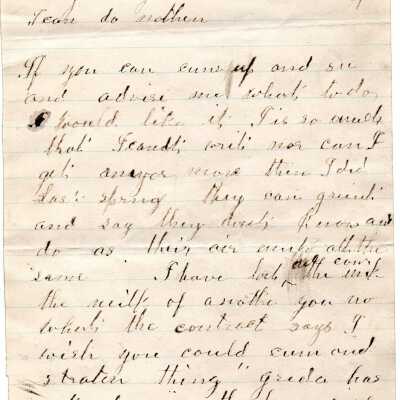 I can do nothen
If you can cum up and se
and advise me what to do
I would like it I is so much
that I candt writ nor can I
get any more then I did
Last spring they can
and say they dont know and
do as their air all the
same I have let the
the milk of anothe you no
what the contract says I
wish you could cum and
straten thing" has